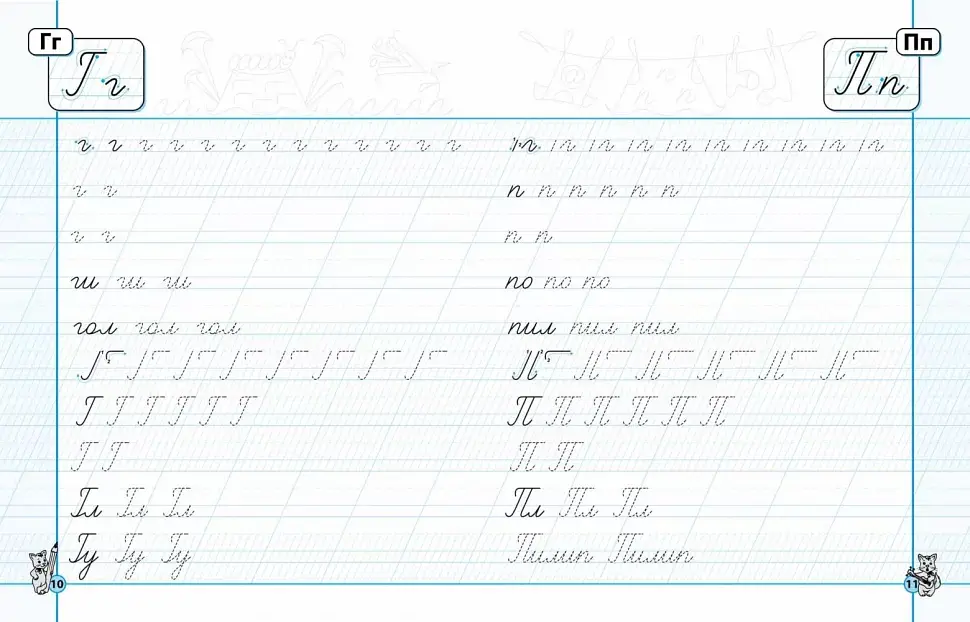 Гг
Г г
г г г г г г г г г г г г г
г г
г г
ги ги ги
гол гол гол
Г Г Г Г Г Г
Г Г
Гл Гл Гл
Гу Гу Гу
10
Пп
П п
п п п п п п
п п
по по по
пил пил пил
П П П П П П
П П
Пл Пл Пл
Пилип Пилип
11